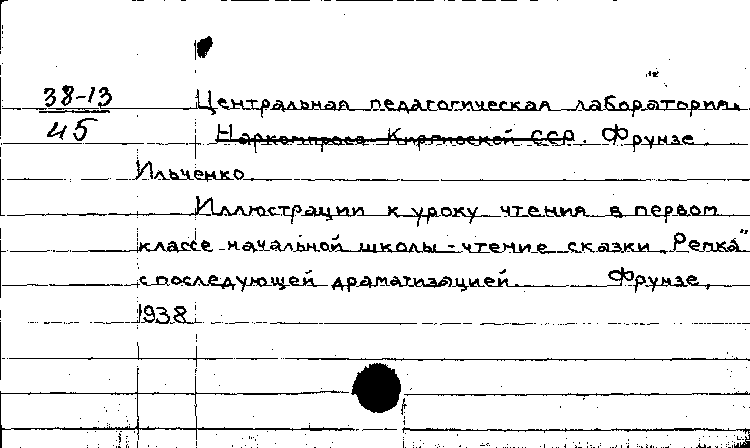 38-13
45
Центральная педагогическая лаборатория.
Наркомпроса Киргизской ССР. Фрунзе.
Ильченко.
Иллюстрации к уроку чтения в первом
классе начальной школы - чтение сказки „Репка"
с последующей драматизацией. Фрунзе,
1938